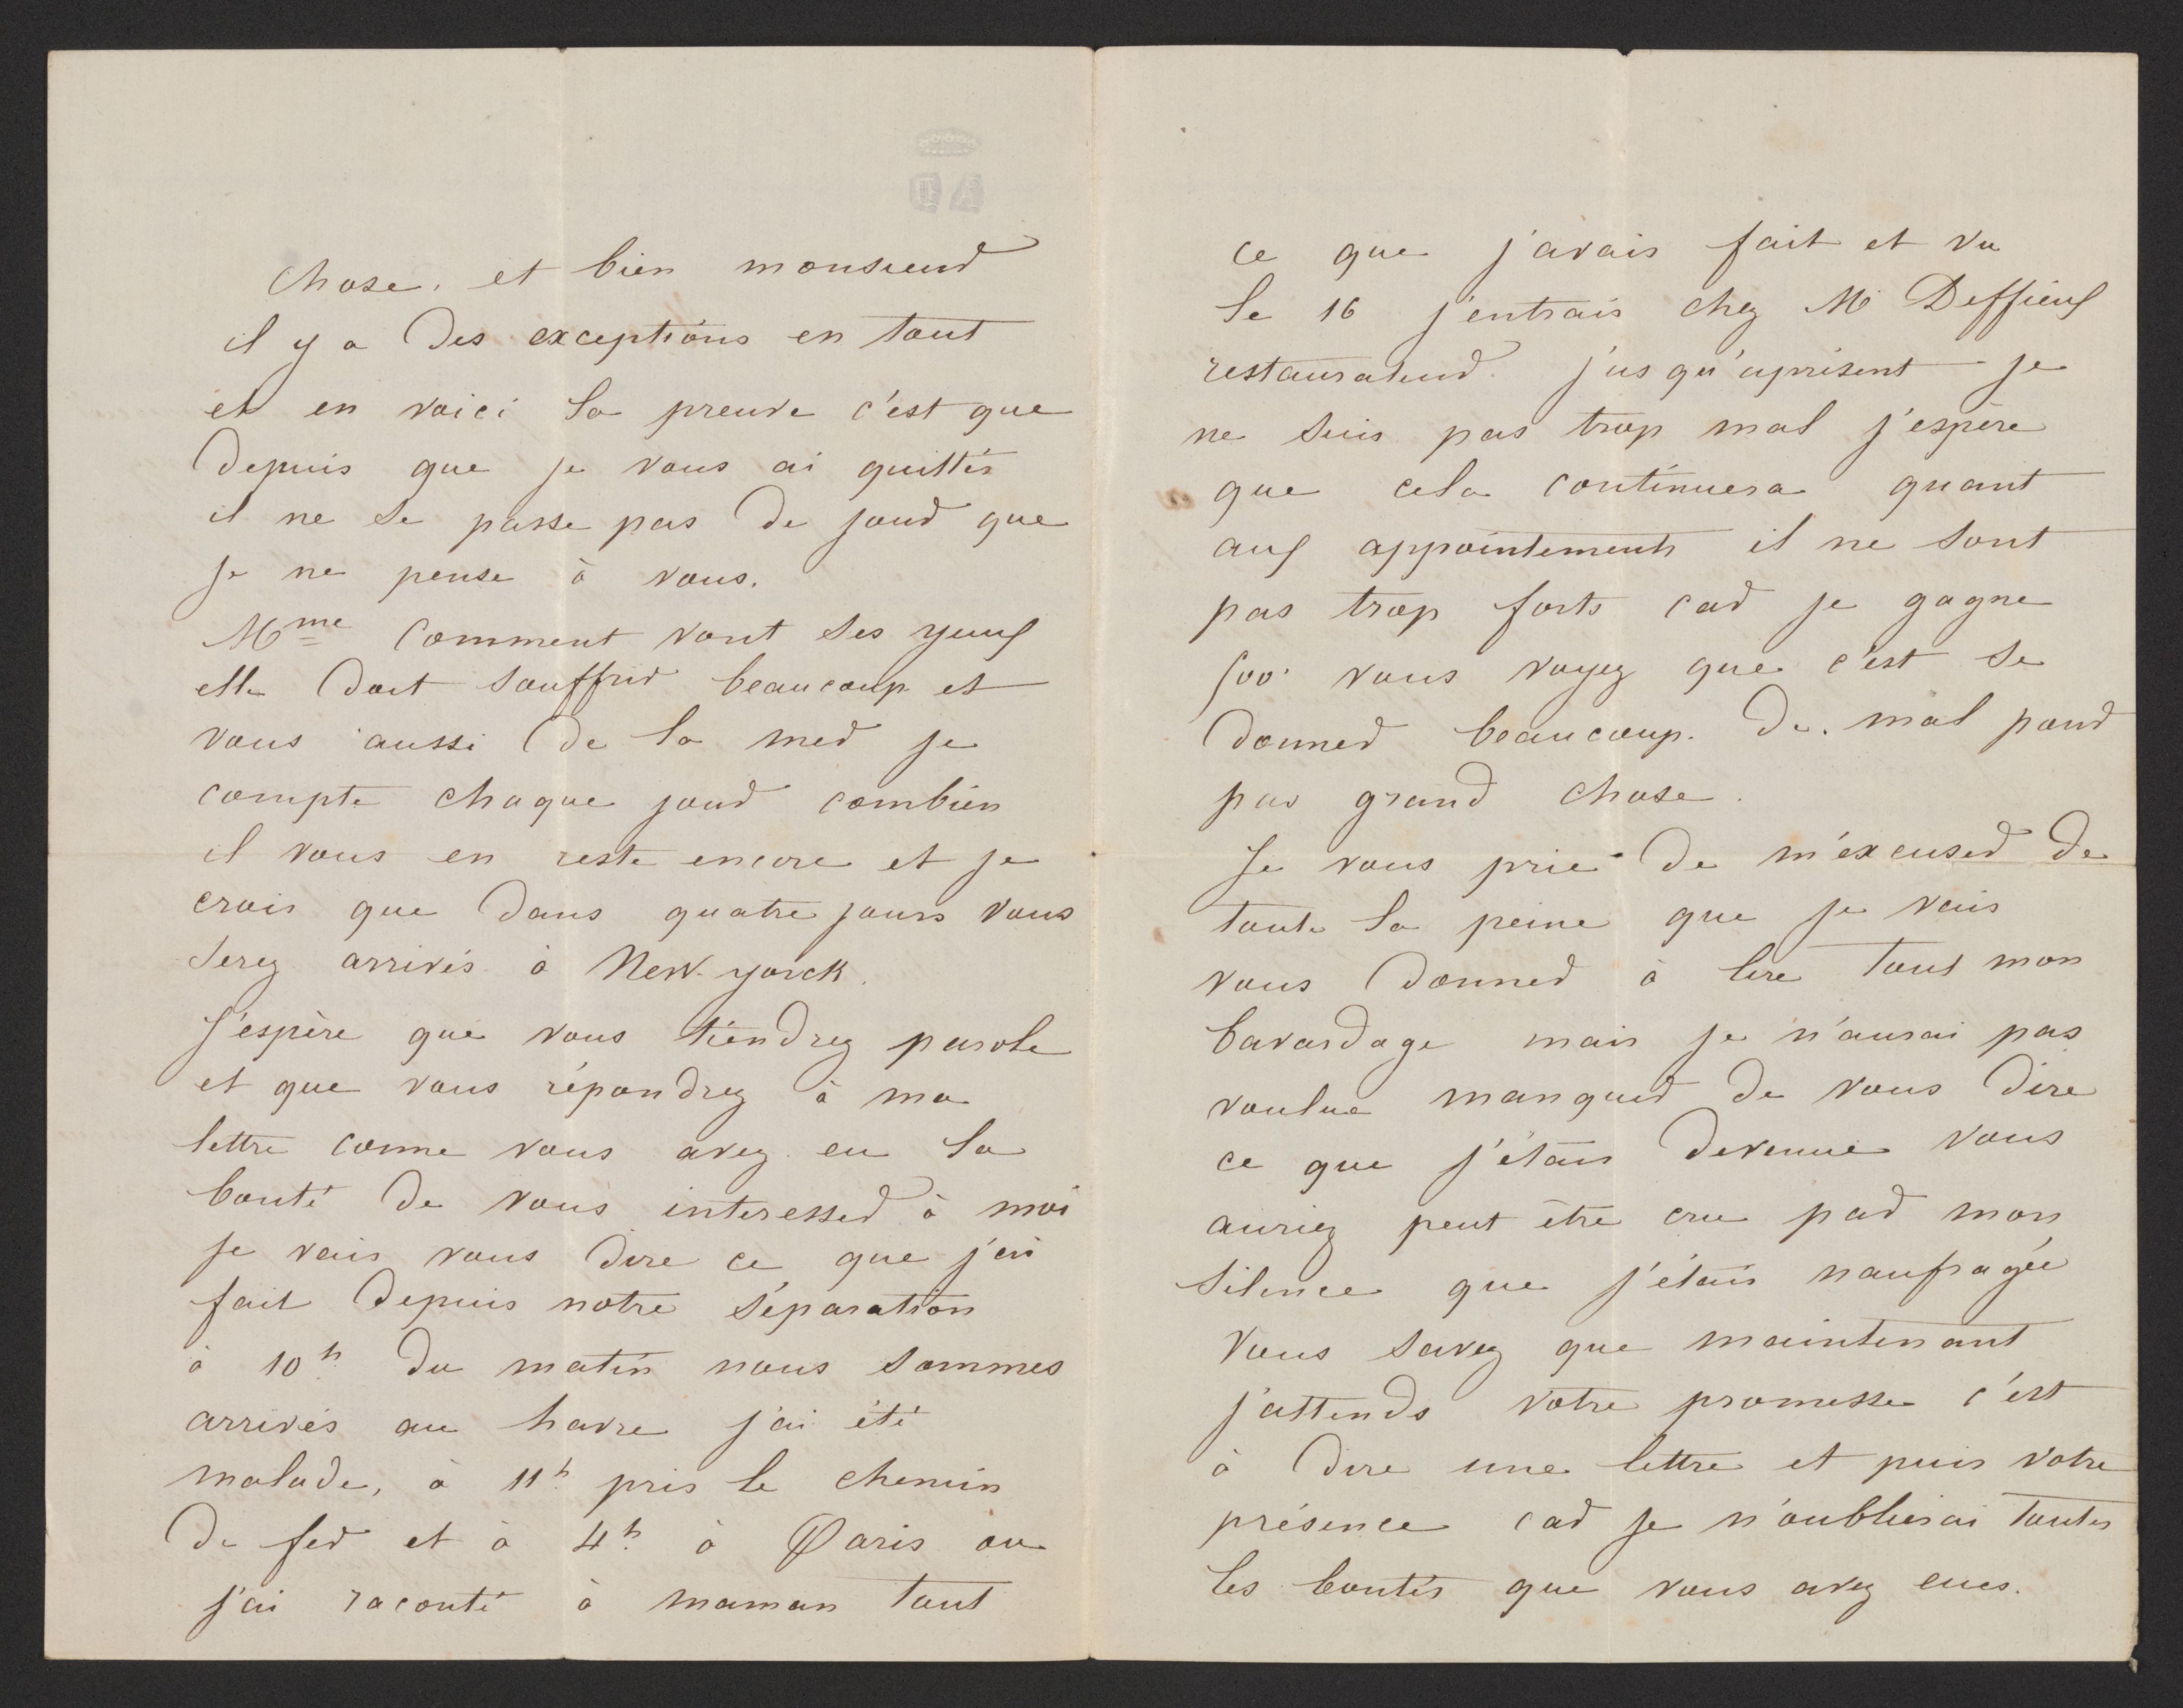 chose, et bien monsieur
il y a des exceptions en tout
et en voici la preuve c'est que
depuis que je vous ai quittés
il ne se passe pas de jour que
je ne pense à vous.
Mme comment vont ses yeux
elle doit souffrir beaucoup et
vous aussi de la mer je
compte chaque jour combien
il vous en reste encore et je
crois que dans quatre jours vous
serez arrivés à New-yorck.
J'espère que vous tiendrez parole
et que vous répondrez à ma
lettre comme vous avez eu la
bonté de vous interesser à moi
je vais vous dire ce que j'ai
fait depuis notre séparation
à 10h du matin nous sommes
arrivés au havre j'ai été
malade, à 11h pris le chemin
de fer et à 4h à Paris ou
j'ai raconté à maman tout
ce que j'avais fait et vu
le 16 j'entrais chez Mr Deffieux
restaurateur. jusqu'aprésent je
ne suis pas trop mal j'espère
que cela continuera quant
aux appointements il ne sont
pas trop forts car je gagne
500f vous voyez que c'est se
donner beaucoup de mal pour
pas grand chose.
Je vous prie de m'excuser de
toute la peine que je vais
vous donner à lire tout mon
bavardage mais je n'aurai pas
voulue manquer de vous dire
ce que j'étais devenue vous
auriez peut être cru par mon
silence que j'étais naufragée
Vous savez que maintenant
j'attends votre promesse c'est
à dire une lettre et puis votre
présence car je n'oublierai toutes
les bontés que vous avez eues.